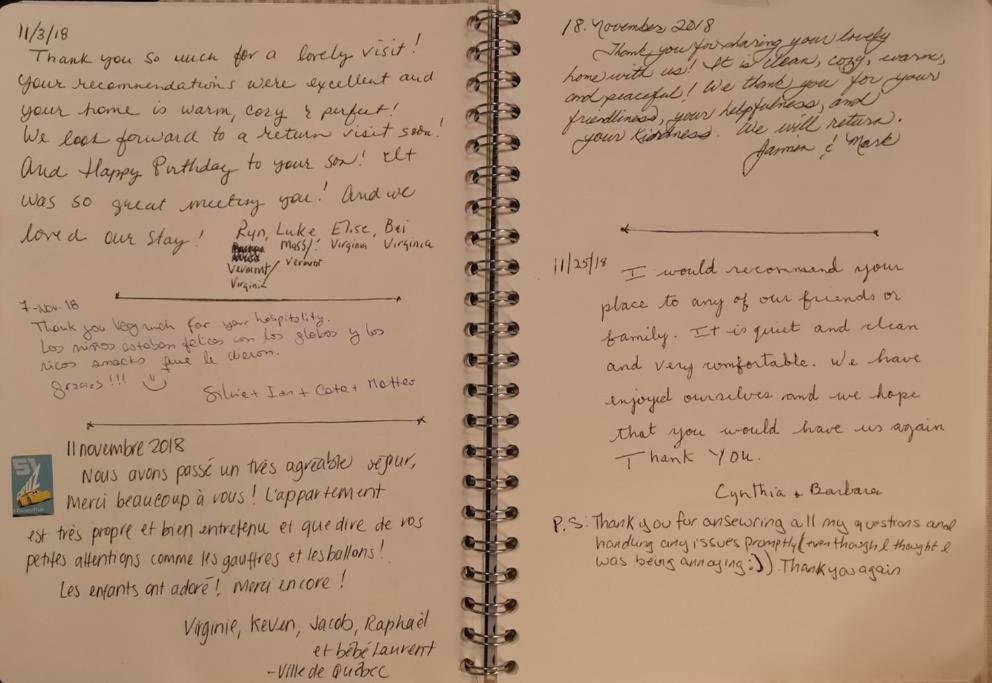 11/3/18
Thank you so much for a lovely visit!
Your recommendations were excellent and
your home is warm, cozy & perfect!
We look forward to a return visit soon!
And Happy Birthday to your son! It
was so great meeting you! And we
loved our stay!
Ryn, Luke Elise, Bai
Mass/ Virginia Virginia
Vermont/
Virginia
7-Nov-18
Thank you very much for your hospitality.
Los niños estaban felices con los globos y los
ricos snacks que le dieron.
Gracias!!!
Silvie + Ian + Cata + Matteo
11 novembre 2018
Nous avons passé un très agréable séjour,
Merci beaucoup à vous! L'appartement
est très propre et bien entretenu et que dire de vos
petites attentions comme les gauffres et les ballons!
Les enfants ont adoré! Merci encore!
Virginie, Keven, Jacob, Raphaël
et bébé Laurent
-Ville de Québec
18. November 2018
Thank you for sharing your lovely
home with us! It is clean, cozy, warm,
and peaceful! We thank you for your
friendliness, your helpfulness, and
your kindness. We will return.
& Mark
11/25/18
I would recommend your
place to any of our friends or
family. It is quiet and clean
and very comfortable. We have
enjoyed ourselves and we hope
that you would have us again
Thank You.
Cynthia + Barbara
P.S: Thank you for answering all my questions and
handling any issues promptly (even though I thought I
was being annoying :)). Thank you again